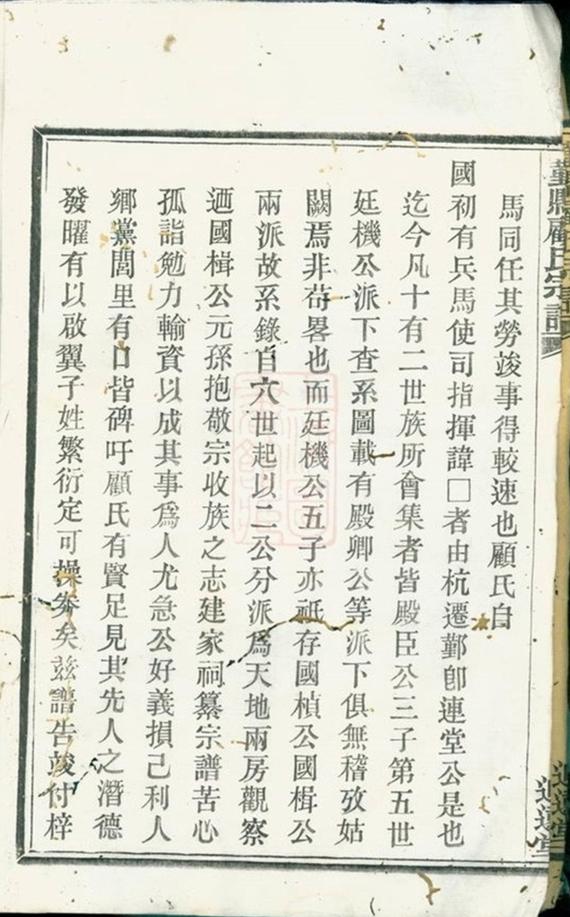 馬同任其勞竣事得較速也顧氏自
國初有兵馬使司指揮諱□者由杭遷鄞卽連堂公是也
迄今凡十有二世族所會集者皆殿臣公三子第五世
廷機公派下查系圖載有殿卿公等派下俱無稽攷姑
闕焉非苟畧也而廷機公五子亦祇存國楨公國楫公
兩派故系錄自六世起以二公分派爲天地兩房觀察
廼國楫公元孫抱敬宗收族之志建家祠纂宗譜苦心
孤詣勉力輸資以成其事爲人尤急公好義損己利人
鄉黨閭里有口皆碑吁顧氏有賢足見其先人之潛德
發曜有以啟翼子姓繁衍定可操券矣茲譜告竣付梓
鄞縣顧氏宗譜